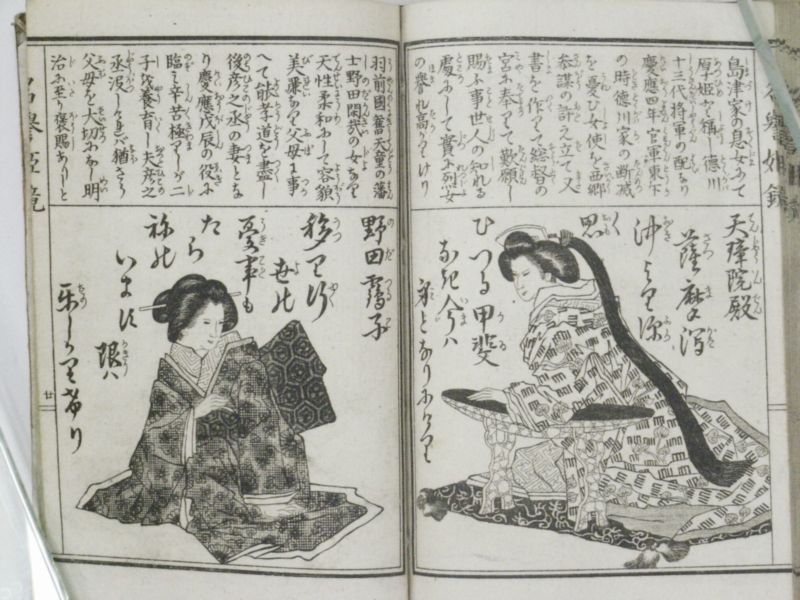 島津家の息女にて
原子姫と稱し德川
十三代將軍の配なり
慶應四年官軍東下
の時德川家の斷滅
を憂ひ女使を西鄕
參謀の許え立て又
書を作りて總督の
宮に奉りて歎願し
賜ふ事世人の知れる
處にして實に烈女
の譽れ高かりけり
天璋院殿
薩摩潟
沖より深
く
思
ひつる甲斐
なき今ハ
羽前國舊天童の藩
士野田閑哉の女なり
天性柔和にして容貌
美麗なり父母に事
へて能孝道を盡し
後彦之丞の妻とな
り慶應戊辰の役に
臨み辛苦極りしが二
子を養育し夫彦之
丞没しけれバ猶さら
父母を大切になし明
治に至り褒賜ありしと
野田霞子
移り行
世の
憂事も
たら
ねの
います
限ハ
樂しかりけり
廿